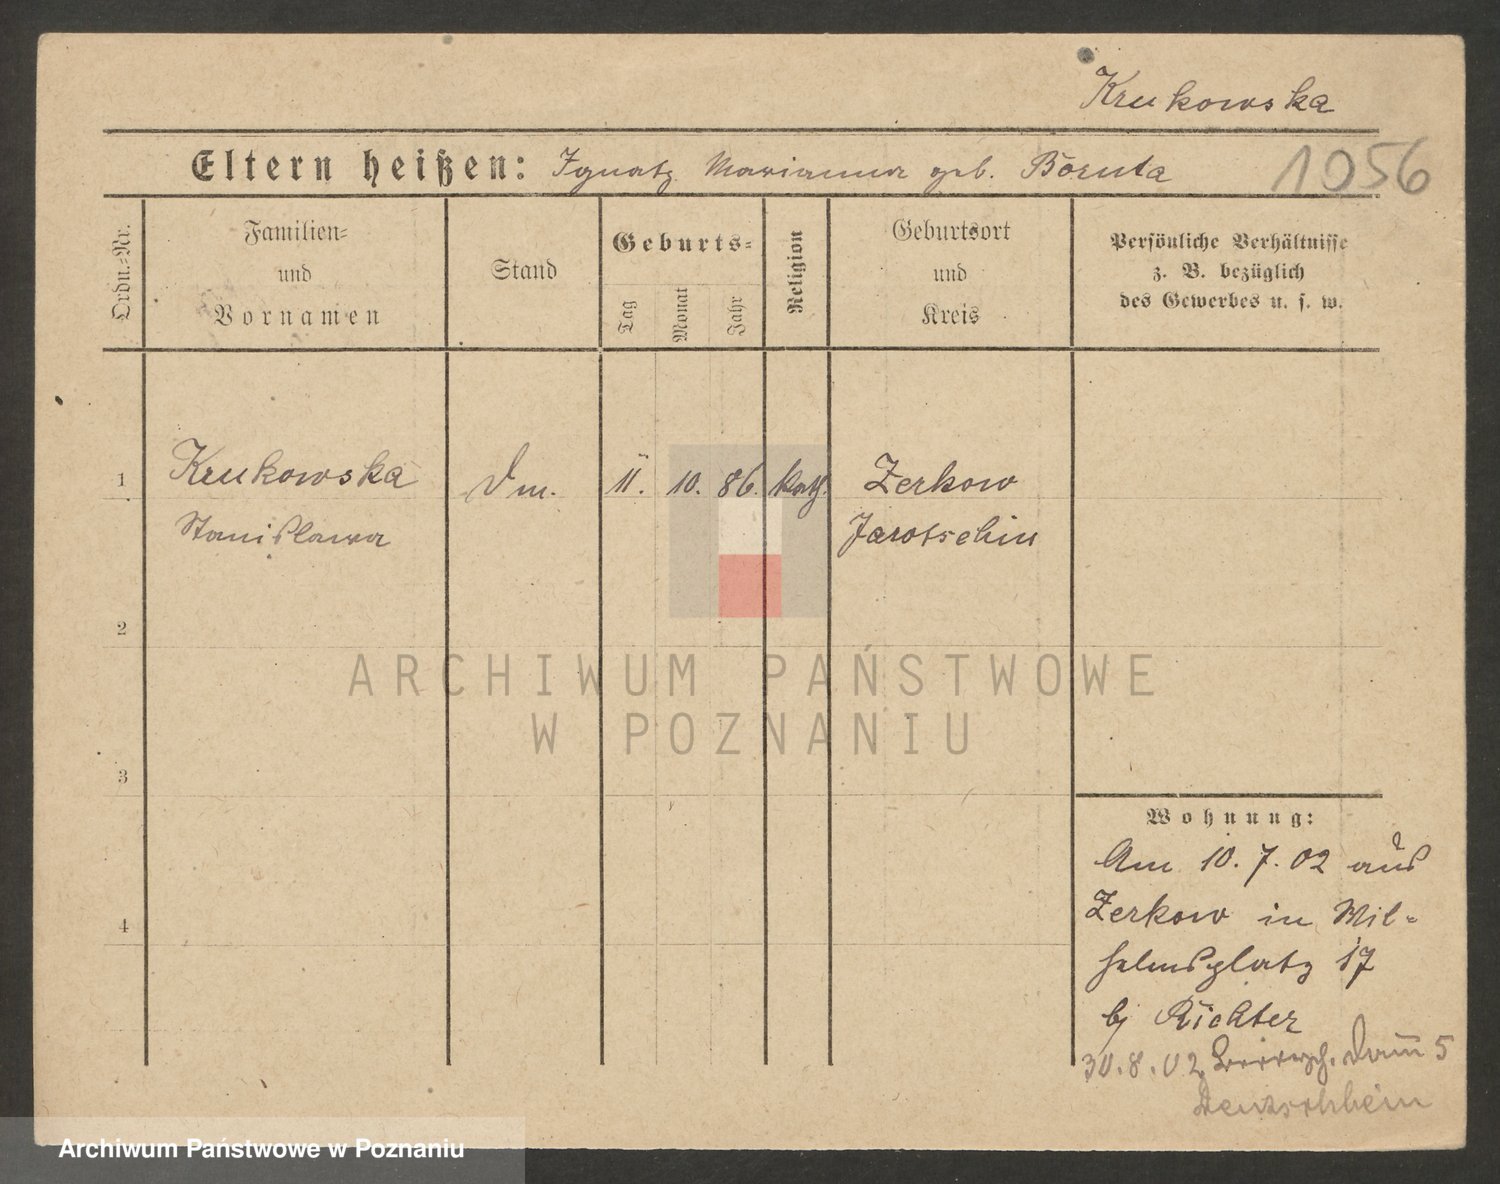 Krukowska
Eltern heißen: Ignatz Marianna geb. Boruta
1056
Ordn.-Nr.
Familien-
und
Vornamen
Stand
Geburts-
Tag
Monat
Jahr
Religion
Geburtsort
und
Kreis
Persönliche Verhältnisse
z. B. bezüglich
des Gewerbes u. s. w.
1 Krukowska Dm. 11. 10. 86. kath. Zerkow
Stanislawa Jarotschin
2
ARCHIWUM PAŃSTWOWE
W POZNANIU
3
Wohnung:
Am 10. 7. 02 aus
Zerkow in Wil-
4
helmsplatz 17
bj Richter
30. 8. 02 Damm 5
Archiwum Państwowe w Poznaniu